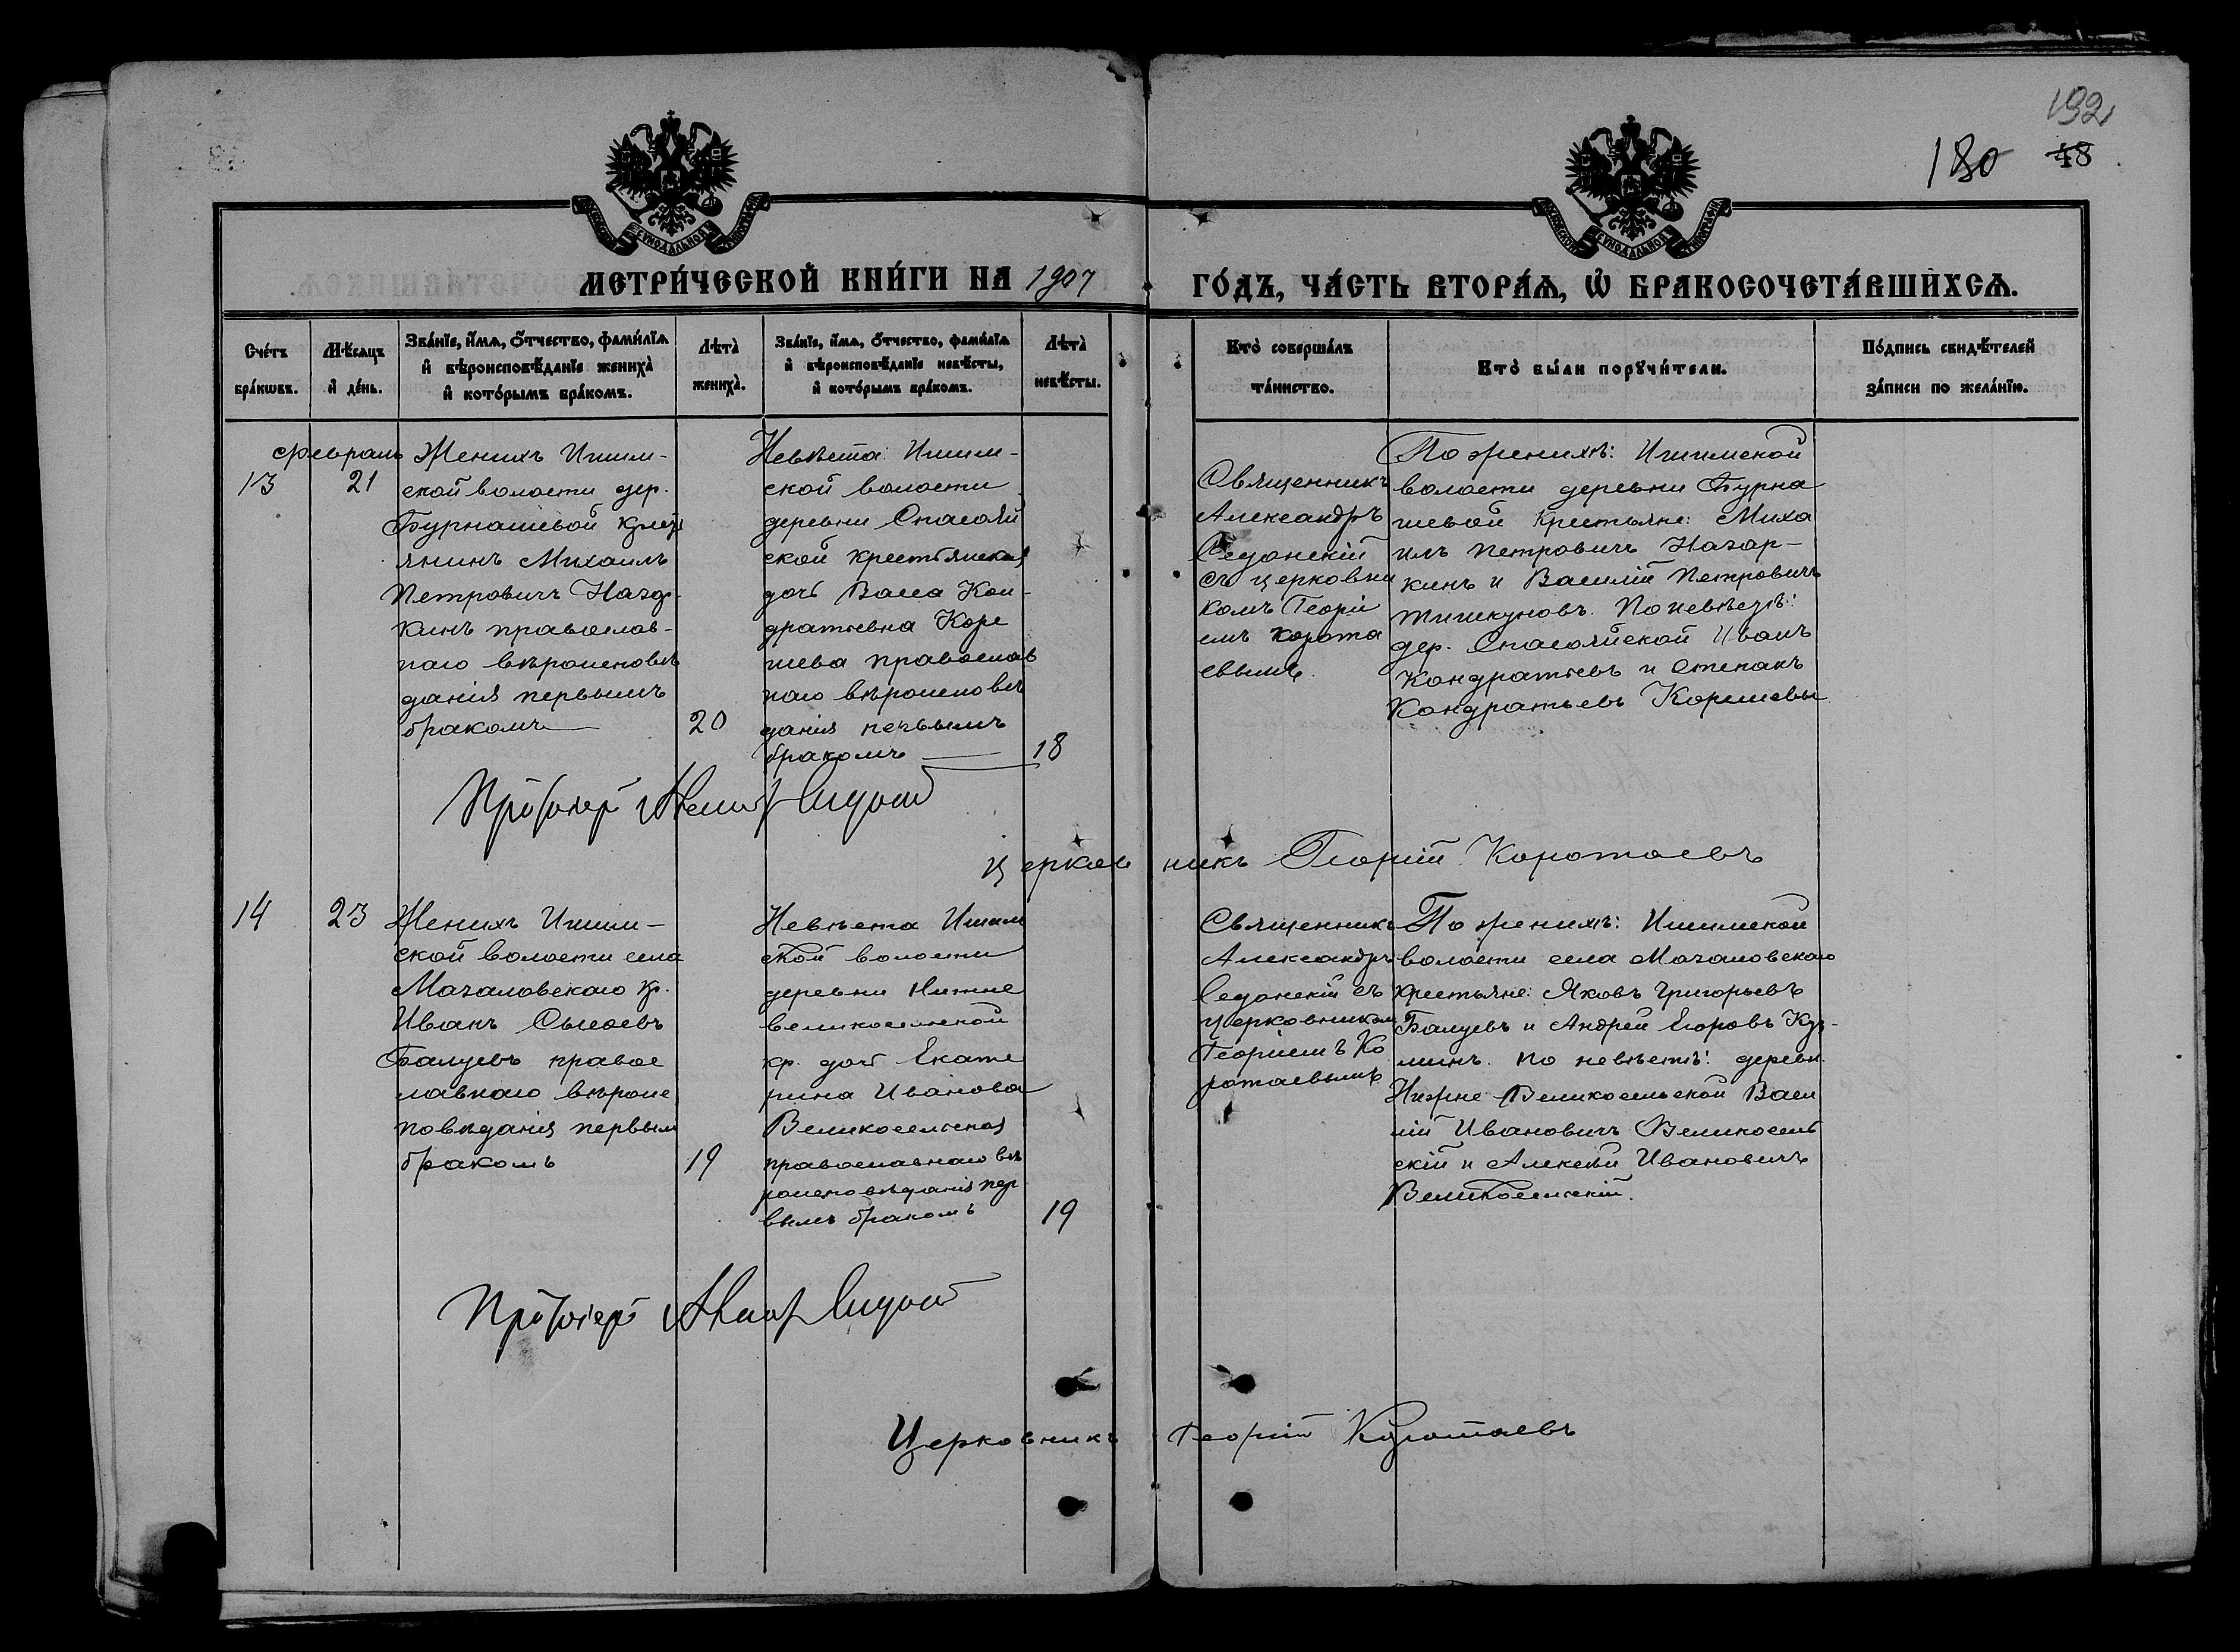 192
180 48
МЕТРИ́ЧЕСКОЙ КНИ́ГИ НА 1907 ГО́ДЪ, ЧА́СТЬ ВТОРА́Ѧ, Ѽ БРАКОСОЧЕТА́ВШИХСѦ.
Сче́тъ бра́кѡвъ.
Мѣ́сѧцъ и҆ де́нь.
Зва́нїе, и҆́мѧ, ѻ҆́тчество, фами́лїѧ
и҆ вѣроисповѣ́данїе жениха̀
и҆ кото́рымъ бра́комъ.
Лѣта̀ жениха̀.
Зва́нїе, и҆́мѧ, ѻ҆́тчество, фами́лїѧ
и҆ вѣроисповѣ́данїе невѣ́сты,
и҆ кото́рымъ бра́комъ.
Лѣта̀ невѣ́сты.
Кто̀ соверша́лъ та́инство.
Кто̀ бы́ли порꙋчи́тели.
По́дпись свидѣ́телей
за́писи по жела́нїю.
13
Февраль
21
Женихъ Ишим-
ской волости дер.
Бурнашевой крест
янинъ Михаилъ
Петровичъ Назар-
кинъ православ-
наго вѣроисповѣ
данія первымъ
бракомъ
20
Невѣста: Ишим-
ской волости
деревни Спасояй
ской крестьянская
дочь Васса Кон-
дратьевна Кор
шева православ
наго вѣроисповѣ
данія первымъ
бракомъ
18
Священникъ
Александръ
Сидонскій
съ церковни
комъ Георгі
емъ Корота
евымъ.
По женихѣ: Ишимской
волости деревни Бурна
шевой крестьяне: Миха
илъ Петровичъ Назар-
кинъ и Василій Петровичъ
Тишкуновъ. По невѣстѣ:
дер. Спасояйской Иванъ
Кондратьевъ и Степанъ
Кондратьевъ Коршевы
Протоіерей
Церков никъ Георгій Коротаевъ
14
23
Женихъ Ишим-
ской волости села
Мазаловскаго кр.
Иванъ Сысоевъ
Балуевъ правос
лавнаго вѣроис
повѣданія первым
бракомъ
19
Невѣста Ишим
ской волости
деревни Нижне
великосельской
кр. дочь Екате
рина Иванова
Великосельская
православнаго вѣ
роисповѣданія пер
вымъ бракомъ
19
Священникъ
Александръ
Сидонскій съ
церковником
Георгіемъ Ко
ротаевымъ
По женихѣ: Ишимской
волости села Мазаловскаго
крестьяне: Яковъ Григорьевъ
Балуевъ и Андрей Егоровъ Куз-
минъ. По невѣстѣ: деревн
Нижне Великосельской Васи
лій Ивановичъ Великосель
скій и Алексѣй Ивановичъ
Великосельскій.
Протоіерей
Церковникъ Георгій Коротаевъ